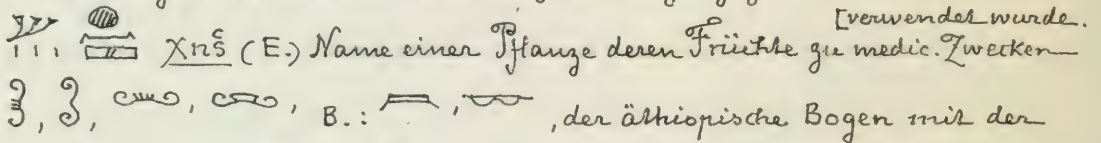 [verwendet wurde.
χnš (E.) Name einer Pflanze deren Früchte zu medic. Zwecken
B.: , der äthiopische Bogen mit der